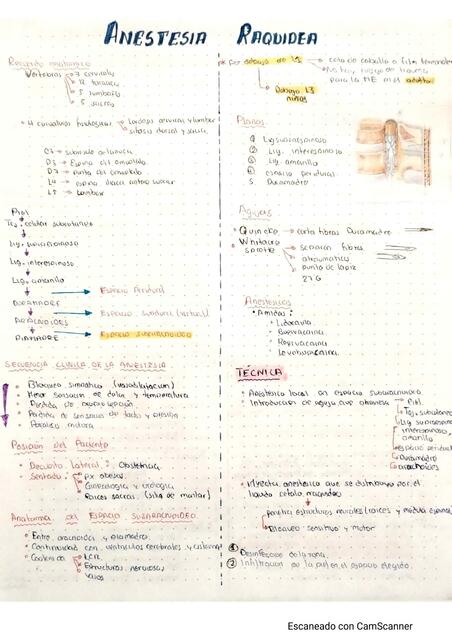 ANESTESIA RAQUIDEA
Recuerdo anatomico
Vertebras 7 cervicales
12 toracicas
5 lumbares
5 sacras
4 curvaturas
Lordosis cervical y lumbar
dorsal y sacra
C7
D3 → Espina del omoplato
D7 → punta del omoplato
L4 → espina iliaca
Piel
Tej. celular subcutaneo
Lig. supraespinoso
Lig. interespinoso
Lig. amarillo
→ Espacio Peridural
DURAMADRE
→ Espacio subdural (virtual)
ARACNOIDES
→ ESPACIO SUBARACNOIDEO
PIAMADRE
SECUENCIA CLINICA DE LA ANESTESIA
Bloqueo simpatico (vasodilatacion)
sensacion de dolor y temperatura
Perdida de propiocepcion
Perdida de sensacion de tacto y presion
Paralisis motora
Posicion del Paciente
Decubito Lateral: Obstetricia,
Sentado: px obesos.
Ginecologia y urologia
Raices sacras. (silla de montar)
Anatomia del ESPACIO SUBARACNOIDEO
Entre aracnoides y piamadre.
Continuidad con ventriculos cerebrales y cisternas
Contenido LCR.
Estructuras nerviosas,
vasos
Por debajo de L1 → cola de caballo o filum terminale
No hay riesgo de trauma
para la ME en el adulto
Debajo L3
niños
Planos
① Lig supraespinoso
② Lig. interespinoso.
③ Lig. amarillo
④ espacio peridural
5 Duramadre
Agujas
Quincke → corta fibras Duramadre
Whitacre
sprotte
separan fibras
atraumatica
punta de lapiz
27 G
Anestesicos
Amidas:
Lidocaina
Bupivacaina
Ropivacaina
Levobupivacaina.
TÉCNICA
Anestesico local en espacio subaracnoideo
Introduccion de aguja que atraviesa → Piel
Tej. subcutaneo
Lig supraespinoso
interespinoso,
amarillo
espacio peridural
Duramadre
aracnoides
anestesico que se distribuye por el
liquido cefalo raquideo
penetra estructuras neurales (raices y medula espinal)
Bloqueo sensitivo y motor
① Desinfeccion de la zona.
② Infiltracion de la piel en el espacio elegido.
Escaneado con CamScanner